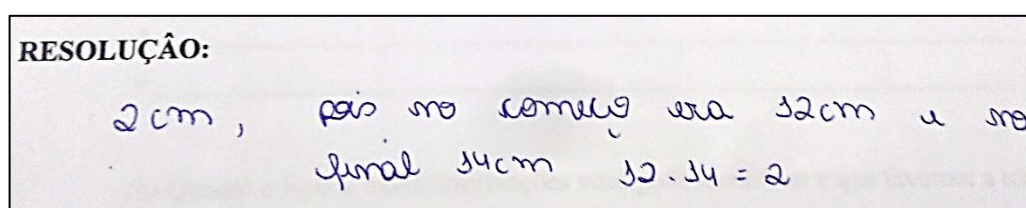 RESOLUÇÂO:
2 cm, pois no começo era 12cm e no
final 14cm 12.14 = 2